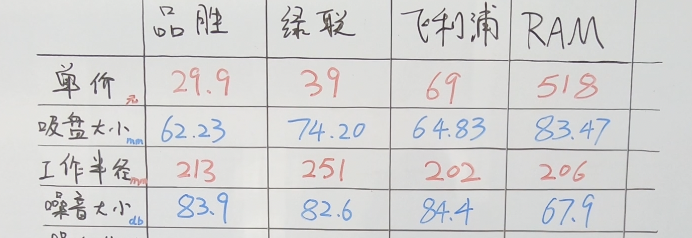 品胜 绿联 飞利浦 RAM
单价元 29.9 39 69 518
吸盘大小mm 62.23 74.20 64.83 83.47
工作半径mm 213 251 202 206
噪音大小db 83.9 82.6 84.4 67.9